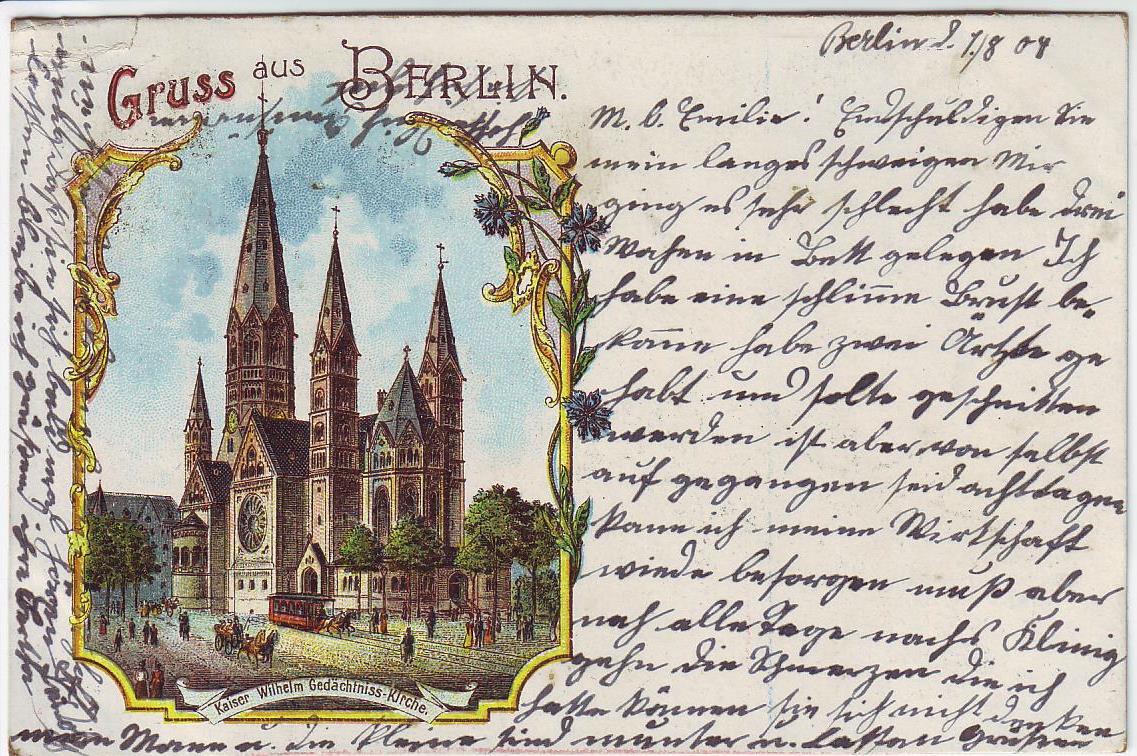 Gruss aus BERLIN.
Berlin d. 1/8 04
M. l. Emilie! Endschuldigen Sie
mein langes schweigen Mir
ging es sehr schlecht habe drei
Wochen in Bett gelegen Ich
habe eine schlim̅e Brust be-
kom̅e habe zwei Ärtzte ge
habt und solte geschnitten
werden ist aber von selbst
auf gegangen seid achttagen
kann ich meine Wirtschaft
wiede besorgen muß aber
noch alle Tage nachs Klinig
gehn die Schmerzen die ich
hatte können sie sich nicht denken
mein Mann u. die kleine sind munter u. lassen Grüssen
Kaiser Wilhelm Gedächtniss-Kirche.